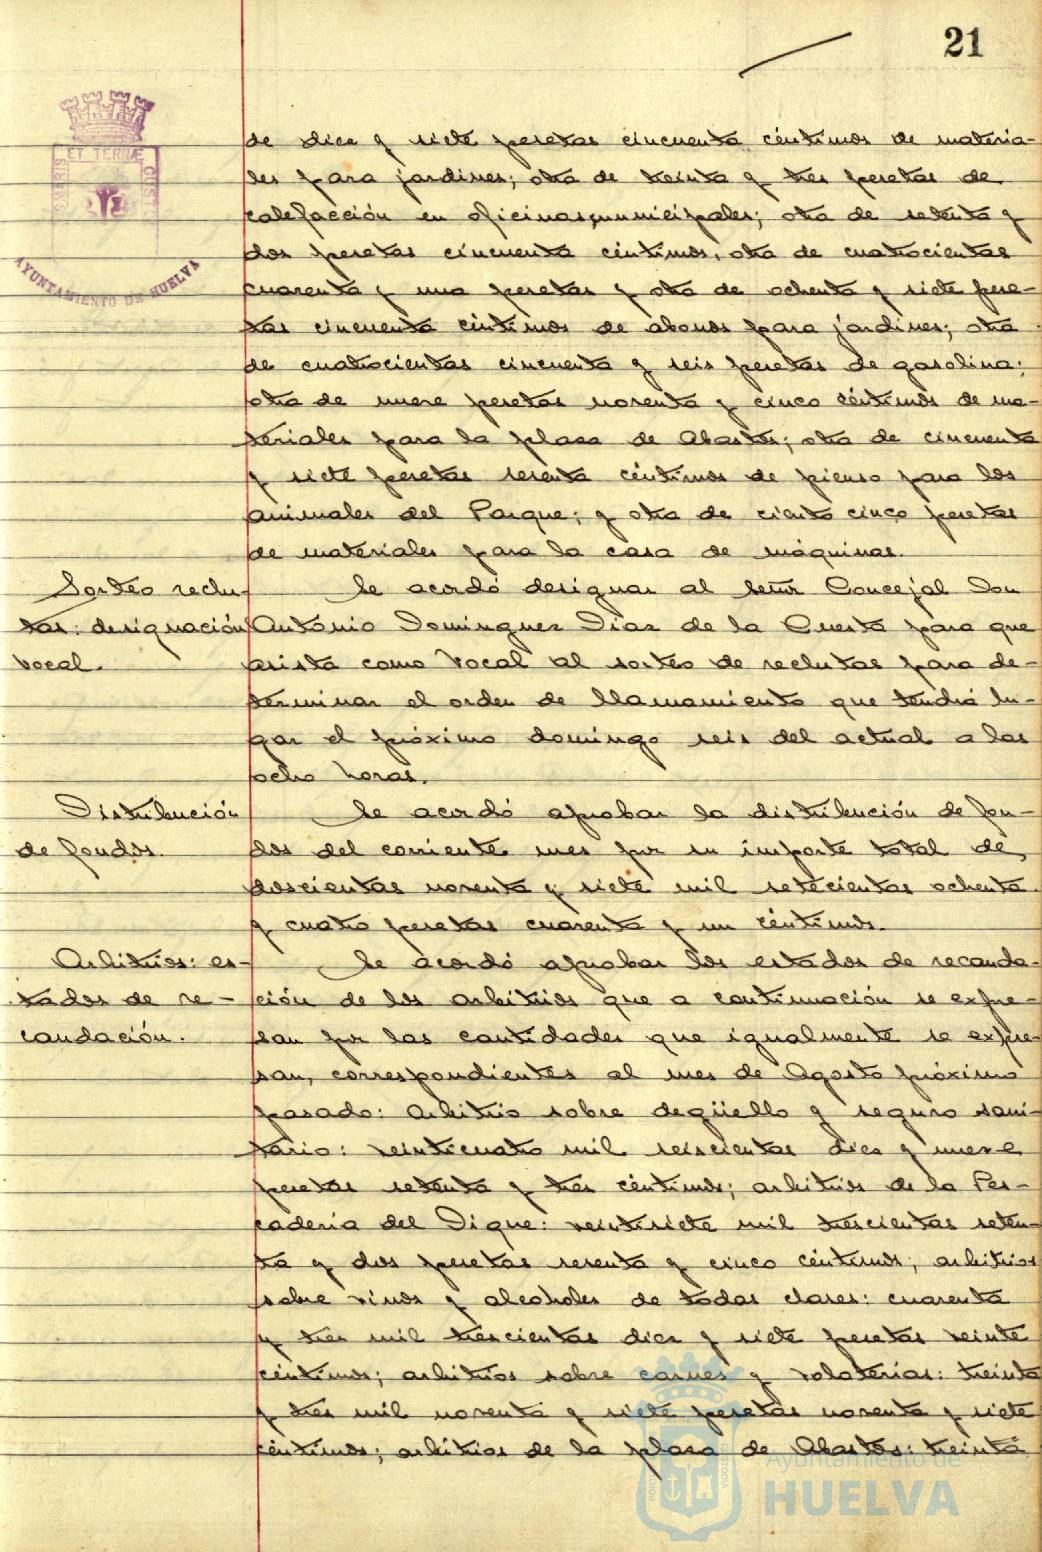 21
PORTUS MARIS ET TERRÆ CUSTODIA
AYUNTAMIENTO DE HUELVA
de diez y siete pesetas cincuenta céntimos de materia-
les para jardines; otra de treinta y tres pesetas de
calefacción en oficinas municipales; otra de setenta y
dos pesetas cincuenta céntimos, otra de cuatrocientas
cuarenta y una pesetas y otra de ochenta y siete pese-
tas cincuenta céntimos de abonos para jardines; otra
de cuatrocientas cincuenta y seis pesetas de gasolina;
otra de nueve pesetas noventa y cinco céntimos de ma-
teriales para la plaza de Abastos; otra de cincuenta
y siete pesetas sesenta céntimos de pienso para los
animales del Parque; y otra de ciento cinco pesetas
de materiales para la casa de máquinas.
Sorteo reclu-
tas: designación
vocal.
Se acordó designar al señor Concejal Don
Antonio Domínguez Díaz de la Cuesta para que
asista como Vocal al sorteo de reclutas para de-
terminar el orden de llamamiento que tendrá lu-
gar el próximo domingo seis del actual a las
ocho horas.
Distribución
de fondos.
Se acordó aprobar la distribución de fon-
dos del corriente mes por su importe total de
doscientas noventa y siete mil setecientas ochenta
y cuatro pesetas cuarenta y un céntimos.
Arbitrios: es-
tados de re-
caudación.
Se acordó aprobar los estados de recauda-
ción de los arbitrios que a continuación se expre-
san por las cantidades que igualmente se expre-
san, correspondientes al mes de Agosto próximo
pasado: arbitrio sobre degüello y seguro sani-
tario: veinticuatro mil seiscientas diez y nueve
pesetas setenta y tres céntimos; arbitrios de la Pes-
cadería del Dique: veintisiete mil trescientas seten-
ta y dos pesetas sesenta y cinco céntimos; arbitrios
sobre vinos y alcoholes de todas clases: cuarenta
y tres mil trescientas diez y siete pesetas veinte
céntimos; arbitrios sobre carnes y volaterías: treinta
y tres mil noventa y siete pesetas noventa y siete
céntimos; arbitrios de la plaza de Abastos: treinta
Ayuntamiento de
HUELVA